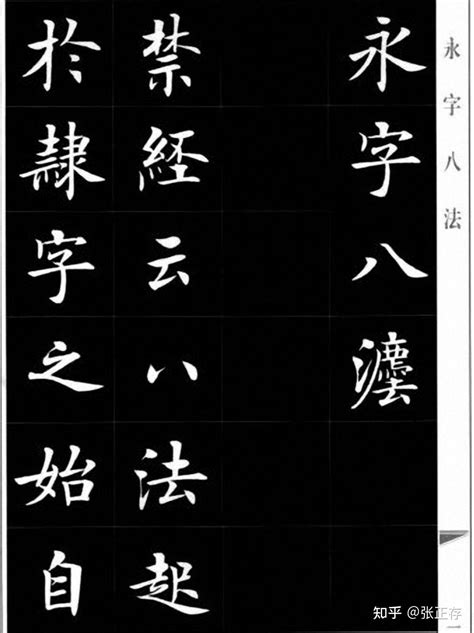 永字八法
永字八灋
禁經云八法起
於隸字之始自
知乎 @张正存